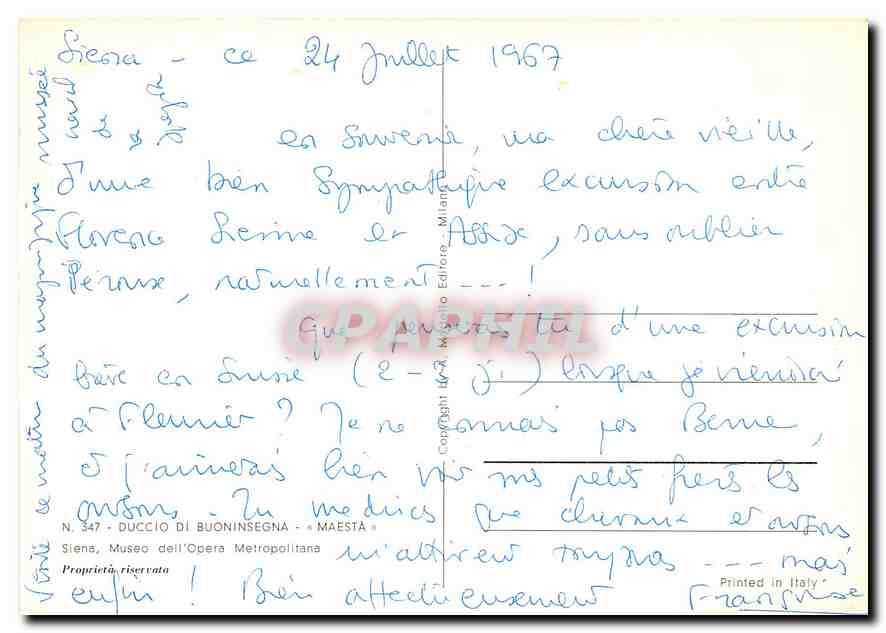 Siena - ce 24 Juillet 1967
en souvenir, ma chère vieille,
d'une bien sympathique excursion entre
Florence Sienne et Assise, sans oublier
Pérouse, naturellement --- !
Que penserais tu d'une excursion
brève en Suisse (2 - 3 j.) lorsque je viendrai
à Fleurier ? Je ne connais pas Berne,
et j'aimerais bien voir mes petits frères les
oursons. Tu me diras que chevaux et oursons
N. 347 - DUCCIO DI BUONINSEGNA - « MAESTÀ »
Siena, Museo dell'Opera Metropolitana
m'attirent --- mais
Proprietà riservata
Printed in Italy
enfin ! Bien affectueusement Françoise
Visite ce matin du magnifique musée
Copyright by A. Modello Editore - Milano
CPAPHIL